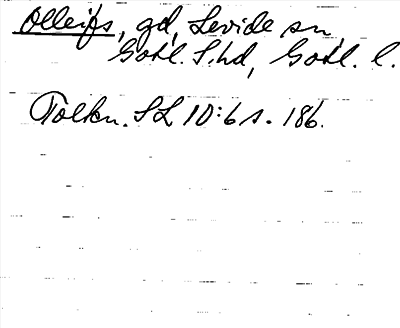 Olleifs, gd, Levide sn,
Gotl. S. hd, Gotl. l.
Tolkn. SL 10:6 s. 186.